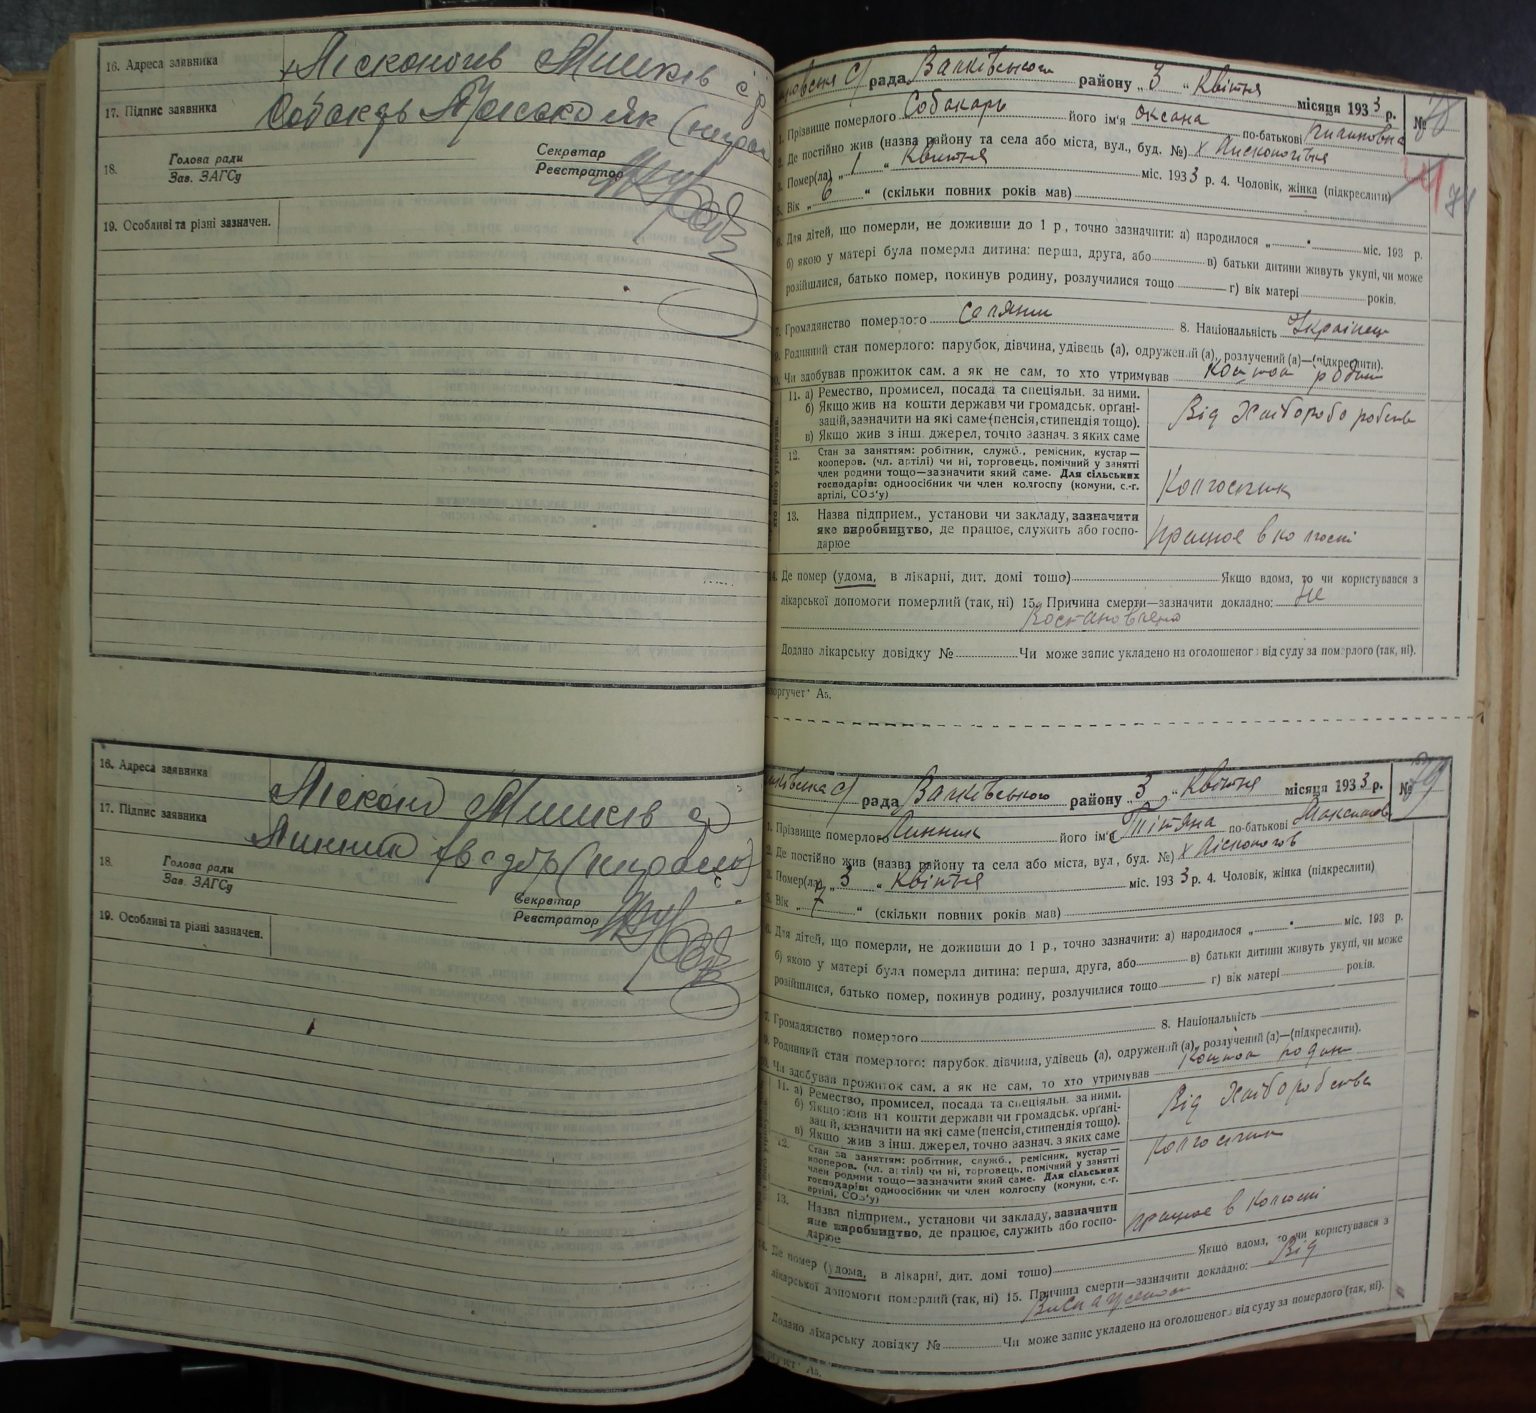 16. Адреса заявника
х Лісконогів Мишків с р
17. Підпис заявника
18. Голова ради
Зав. ЗАГСу
Секретар
Реєстратор
19. Особливі та різні зазначен.
16. Адреса заявника
Мишків
17. Підпис заявника
18. Голова ради
Зав. ЗАГСу
Секретар
Реєстратор
19. Особливі та різні зазначен.
с/ рада Валківського району „3 “ Квітня місяця 1933 р. №
1. Прізвище померлого Собакарь його ім'я Оксана по-батькові
2. Де постійно жив (назва району та села або міста, вул., буд. №) х
3. Помер(ла) „ 1 “ Квітня міс. 1933 р. 4. Чоловік, жінка (підкреслити)
5. Вік „ 6 “ (скільки повних років мав)
6. Для дітей, що померли, не доживши до 1 р., точно зазначити: а) народилося „ “ міс. 193 р.
б) якою у матері була померла дитина: перша, друга, або в) батьки дитини живуть укупі, чи може
розійшлися, батько помер, покинув родину, розлучилися тощо г) вік матері років.
7. Громадянство померлого 8. Національність Українець
9. Родинний стан померлого: парубок, дівчина, удівець (а), одружений (а), розлучений (а)—(підкреслити).
10. Чи здобував прожиток сам, а як не сам, то хто утримував
11. а) Ремество, промисел, посада та спеціяльн. за ними.
б) Якщо жив на кошти держави чи громадськ. органі-
зацій, зазначити на які саме (пенсія, стипендія тощо).
в) Якщо жив з інш. джерел, точно зазнач. з яких саме
Від
12. Стан за заняттям: робітник, служб., ремісник, кустар—
кооперов. (чл. артілі) чи ні, торговець, помічний у занятті
член родини тощо—зазначити який саме. Для сільських
господарів: одноосібник чи член колгоспу (комуни, с.-г.
артілі, СОЗ'у)
Колгоспник
13. Назва підприєм., установи чи закладу, зазначити
яке виробництво, де працює, служить або госпо-
дарює
працює в колгоспі
14. Де помер (удома, в лікарні, дит. домі тощо) Якщо вдома, то чи користувався з
лікарської допомоги померлий (так, ні) 15. Причина смерти—зазначити докладно: Не
Востановлено
Додано лікарську довідку № Чи може запис укладено на оголошеног. від суду за померлого (так, ні).
А5.
с/ рада Валківського району „3 “ Квітня місяця 1933 р. №
1. Прізвище померлого Линник його ім'я по-батькові
2. Де постійно жив (назва району та села або міста, вул., буд. №) х Лісконогів
3. Помер(ла) „ 3 “ Квітня міс. 1933 р. 4. Чоловік, жінка (підкреслити)
5. Вік „ 7 “ (скільки повних років мав)
6. Для дітей, що померли, не доживши до 1 р., точно зазначити: а) народилося „ “ міс. 193 р.
б) якою у матері була померла дитина: перша, друга, або в) батьки дитини живуть укупі, чи може
розійшлися, батько помер, покинув родину, розлучилися тощо г) вік матері років.
7. Громадянство померлого 8. Національність
9. Родинний стан померлого: парубок, дівчина, удівець (а), одружений (а), розлучений (а)—(підкреслити).
10. Чи здобував прожиток сам, а як не сам, то хто утримував
11. а) Ремество, промисел, посада та спеціяльн. за ними.
б) Якщо жив на кошти держави чи громадськ. органі-
зацій, зазначити на які саме (пенсія, стипендія тощо).
в) Якщо жив з інш. джерел, точно зазнач. з яких саме
Від Хліборобства
12. Стан за заняттям: робітник, служб., ремісник, кустар—
кооперов. (чл. артілі) чи ні, торговець, помічний у занятті
член родини тощо—зазначити який саме. Для сільських
господарів: одноосібник чи член колгоспу (комуни, с.-г.
артілі, СОЗ'у)
Колгоспник
13. Назва підприєм., установи чи закладу, зазначити
яке виробництво, де працює, служить або госпо-
дарює
працює в колгоспі
14. Де помер (удома, в лікарні, дит. домі тощо) Якщо вдома, то чи користувався з
лікарської допомоги померлий (так, ні) 15. Причина смерти—зазначити докладно: Від
Додано лікарську довідку № Чи може запис укладено на оголошеног. від суду за померлого (так, ні).
А5.